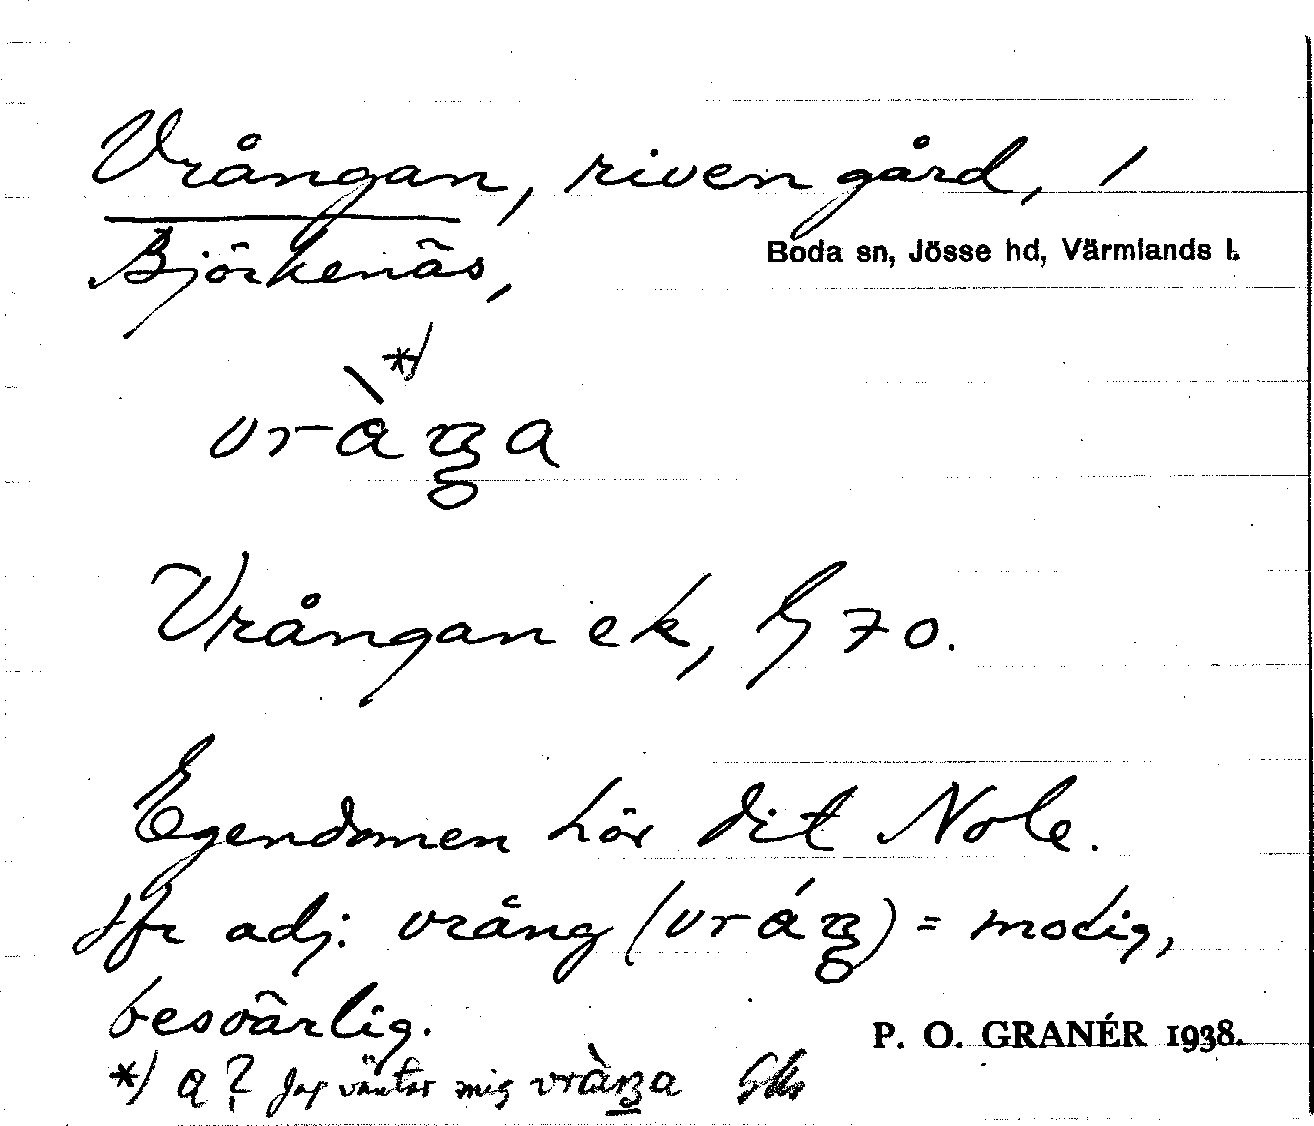 Vrångan, riven gård, 1
Björkenäs,
Boda sn, Jösse hd, Värmlands l.
*)
vràŋa
Vrångan ek, Lg 70.
Egendomen hör dit Nole.
Jfr adj. vrång (vráŋ) = modig,
besvärlig.
P. O. GRANÉR 1938.
*) a? Jag väntar mig vràŋa